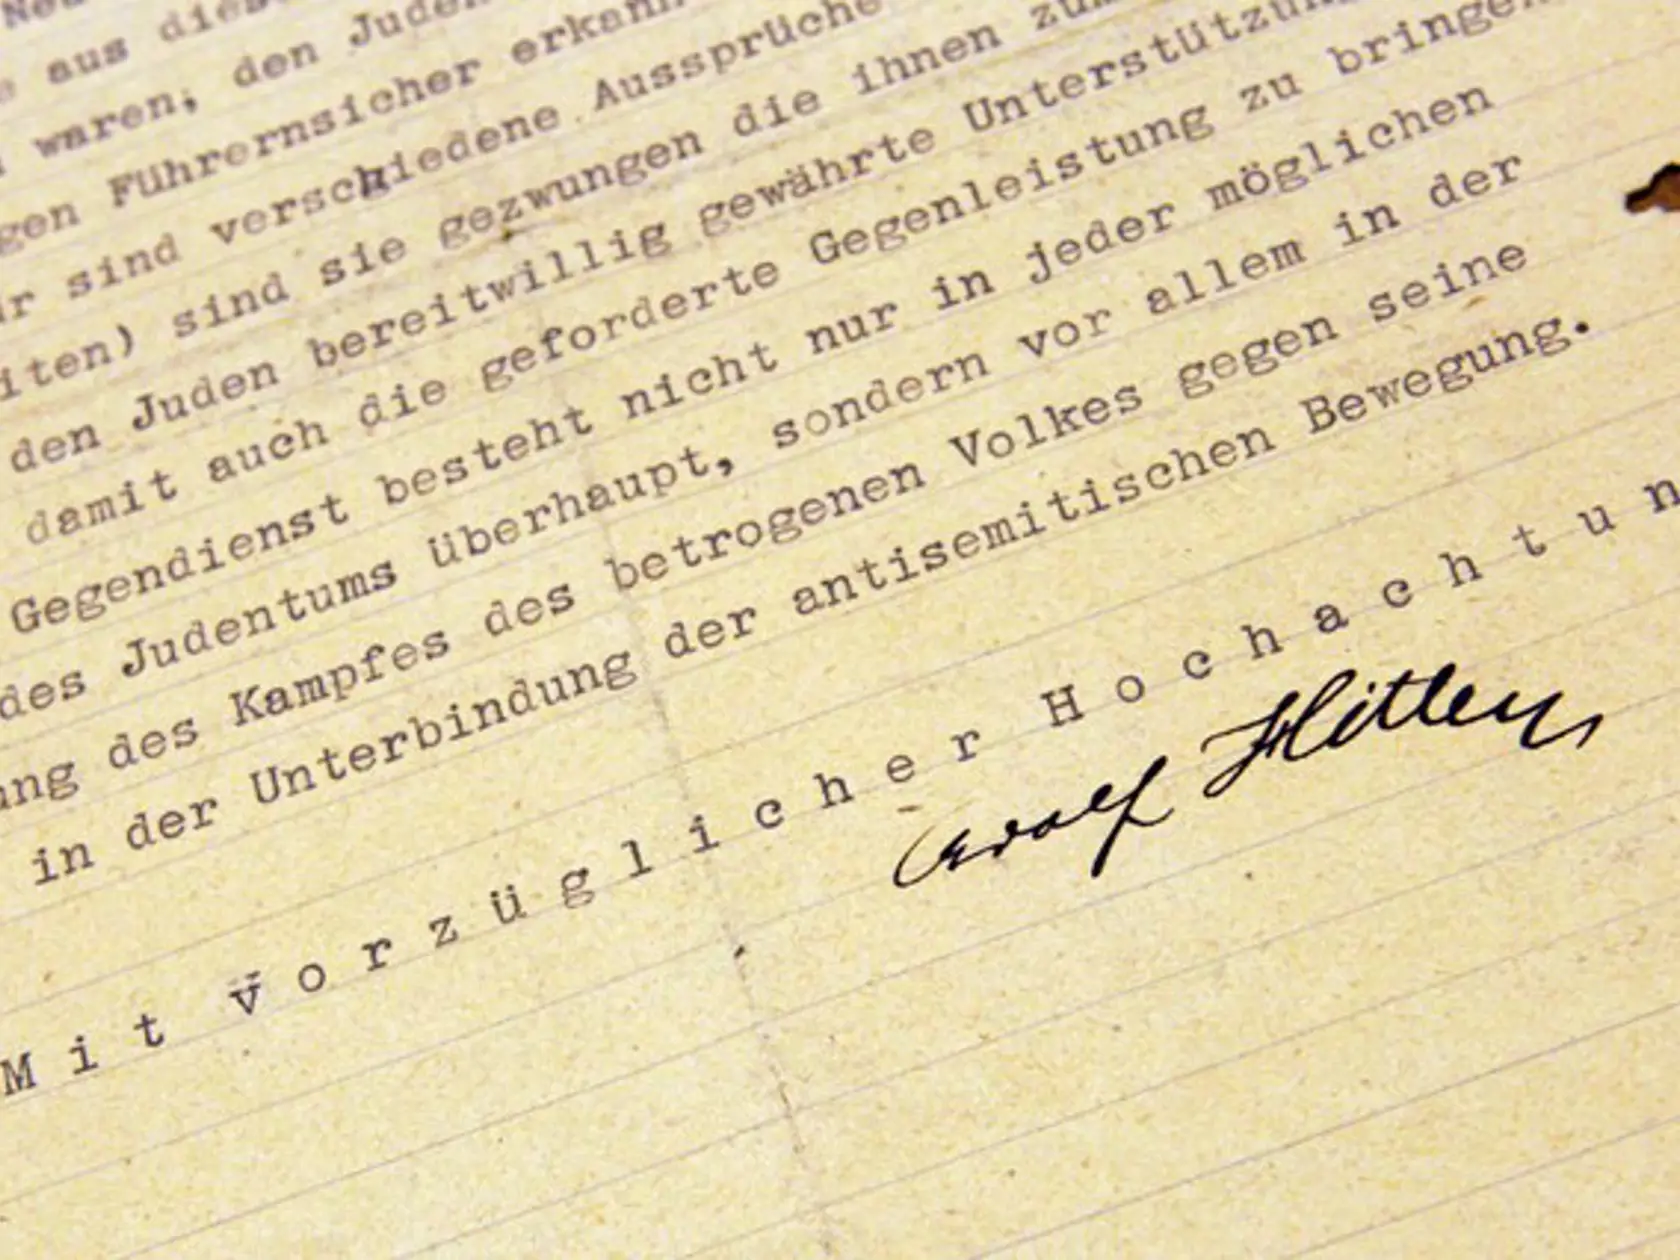 aus
waren, den Juden
Führernsicher
sind verschiedene Aussprüche
iten) sind sie gezwungen die ihnen
den Juden bereitwillig gewährte
damit auch die geforderte Gegenleistung zu bringen
Gegendienst besteht nicht nur in jeder möglichen
des Judentums überhaupt, sondern vor allem in der
ung des Kampfes des betrogenen Volkes gegen seine
in der Unterbindung der antisemitischen Bewegung.
Mit vorzüglicher Hochachtun
Adolf Hitler